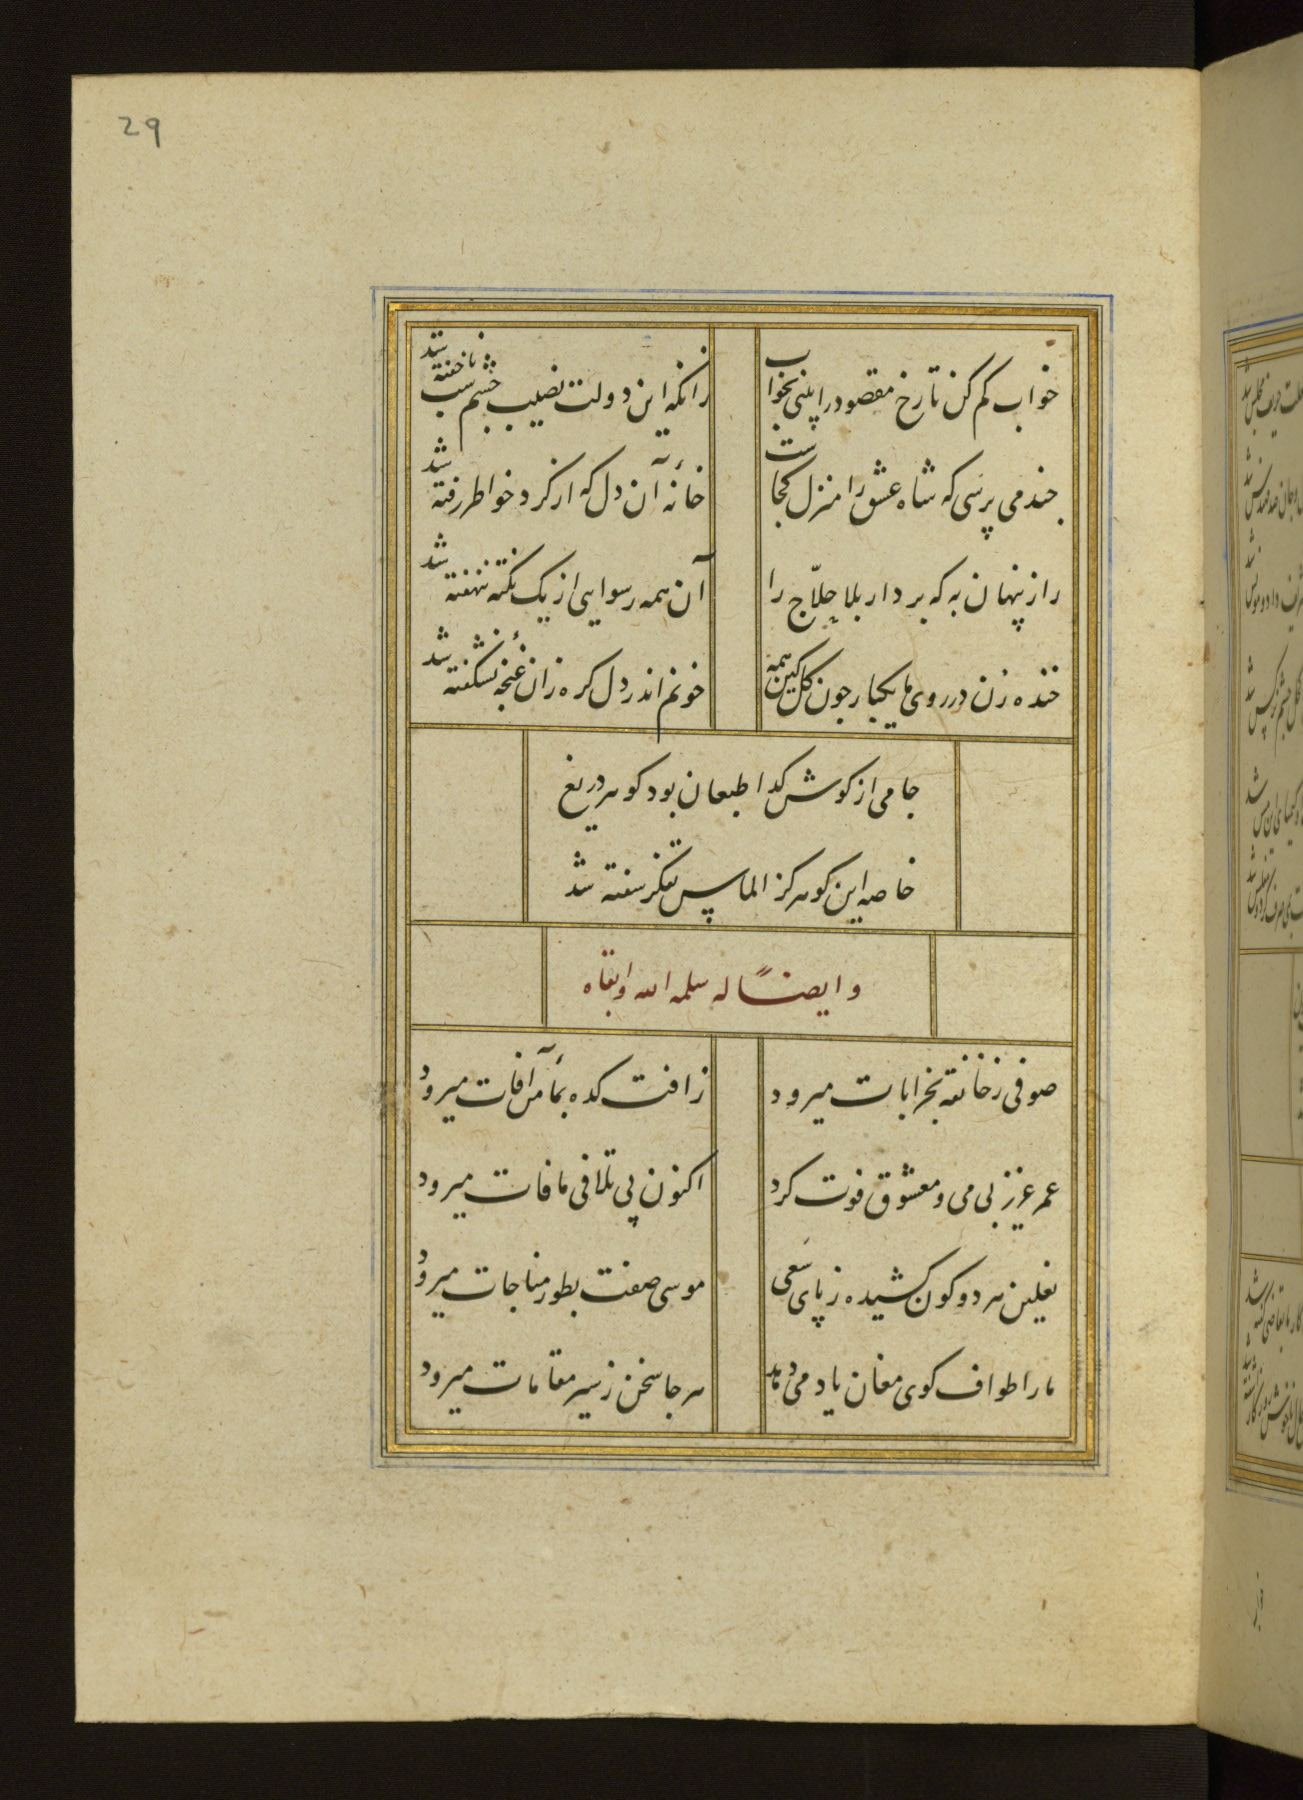 29
خواب کم کن تا رخ مقصود را بینی بخواب
زانکه این دولت نصیب چشم شب ناخفته شد
چند می پرسی که شاه عشق را منزل کجاست
خانهٔ آن دل که از کرد خواطر رفته شد
راز پنهان به که بر دار بلا حلّاج را
آن همه رسوایی از یک نکته ننهفته شد
خنده زن در روی ما یکبار چون کل کین همه
خونم اندر دل کره زان غنچهٔ نشکفته شد
جامی از کوش کدا طبعان بود کوهر دریغ
خاصه این کوهر کز الماس تفکر سفته شد
وایضاً له سلمه الله وابقاه
صوفی ز خانقه بخرابات میرود
ز آفت کده بمأمن آفات میرود
عمر عزیز بی می و معشوق فوت کرد
اکنون پی تلافی مافات میرود
نعلین هر دو کون کشیده ز پای سعی
موسی صفت بطور مناجات میرود
ما را طواف کوی مغان یاد می دهد
هر جا سخن ز سیر مقامات میرود